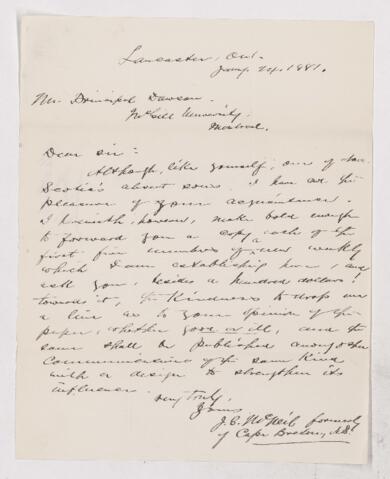 Lancaster, Ont.
Jany. 24, 1881.
Mr. Principal Dawson.
McGill University,
Montreal.
Dear sir:
Although, like yourself, one of Nova
Scotia's absent sons, I have not the
pleasure of your acquaintance.
I herewith, however, make bold enough
to forward you a copy each of the
first few numbers of a new weekly
which I am establishing here, and
ask you, besides a hundred dollars!
toward it, the kindness to drop me
a line as to your opinion of the
paper, whether good or ill, and the
same shall be published among other
communications of the same kind
with a design to strengthen its
influence.
Very truly,
Yours
J. C. McNeil formerly
of Cape Breton, N.S.